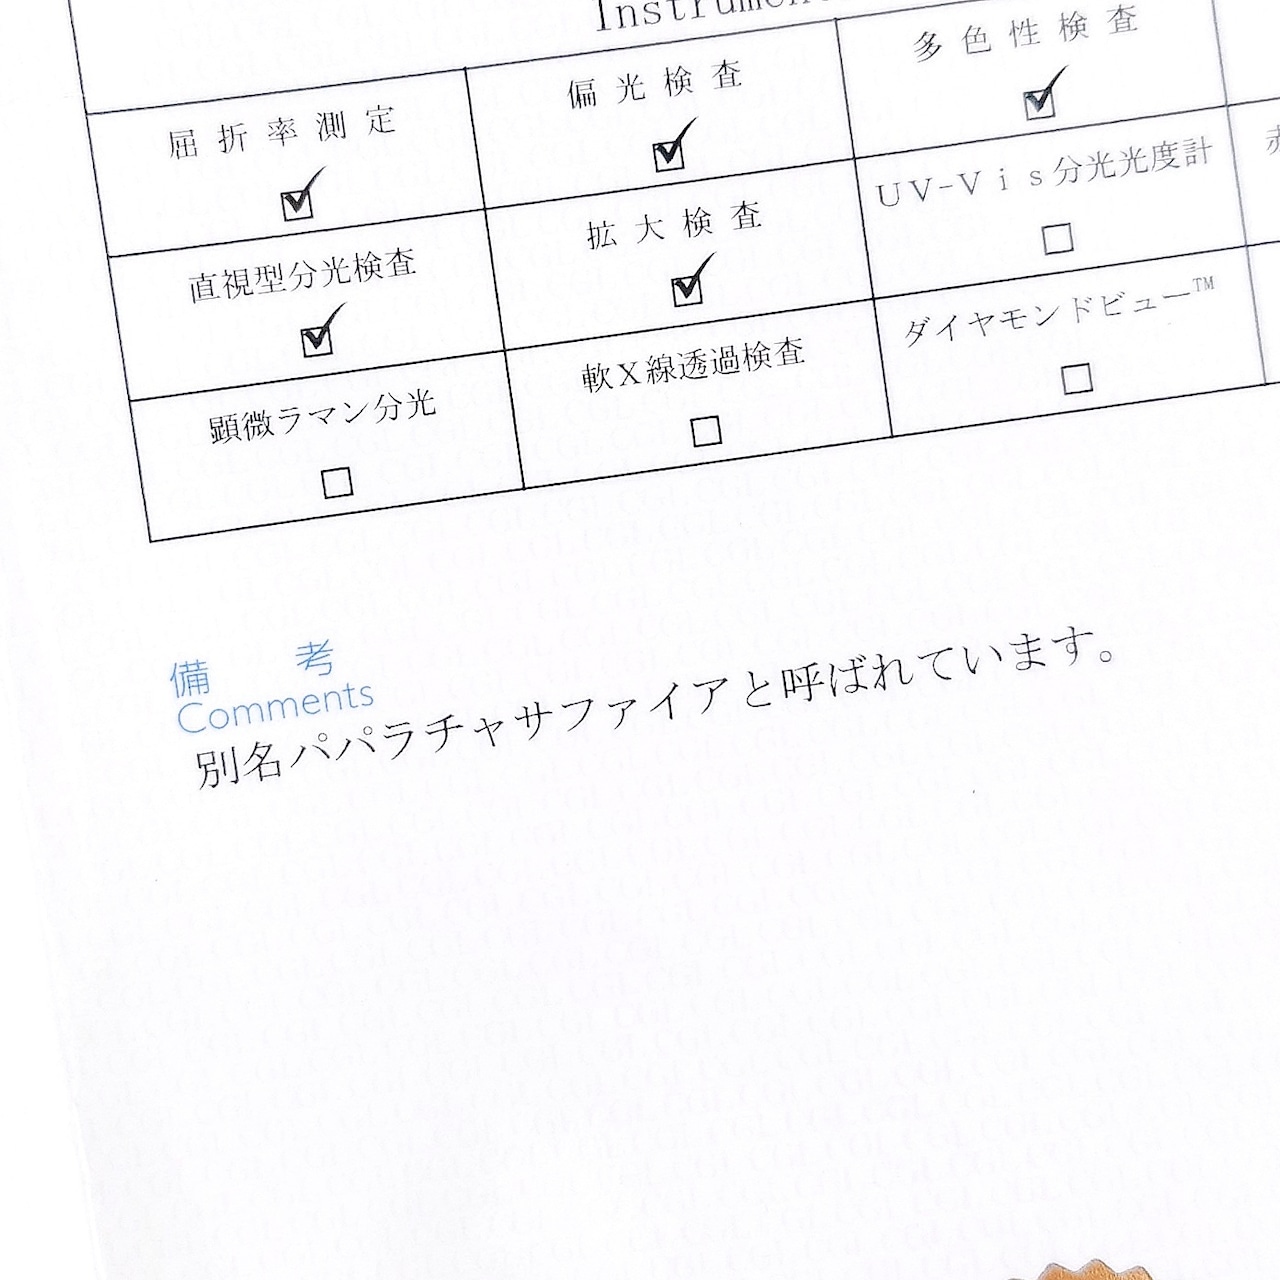 屈折率測定
偏光検査
多色性検査
直視型分光検査
拡大検査
UV-Vis分光光度計
顕微ラマン分光
軟X線透過検査
ダイヤモンドビュー™
備考
Comments
別名パパラチャサファイアと呼ばれています。